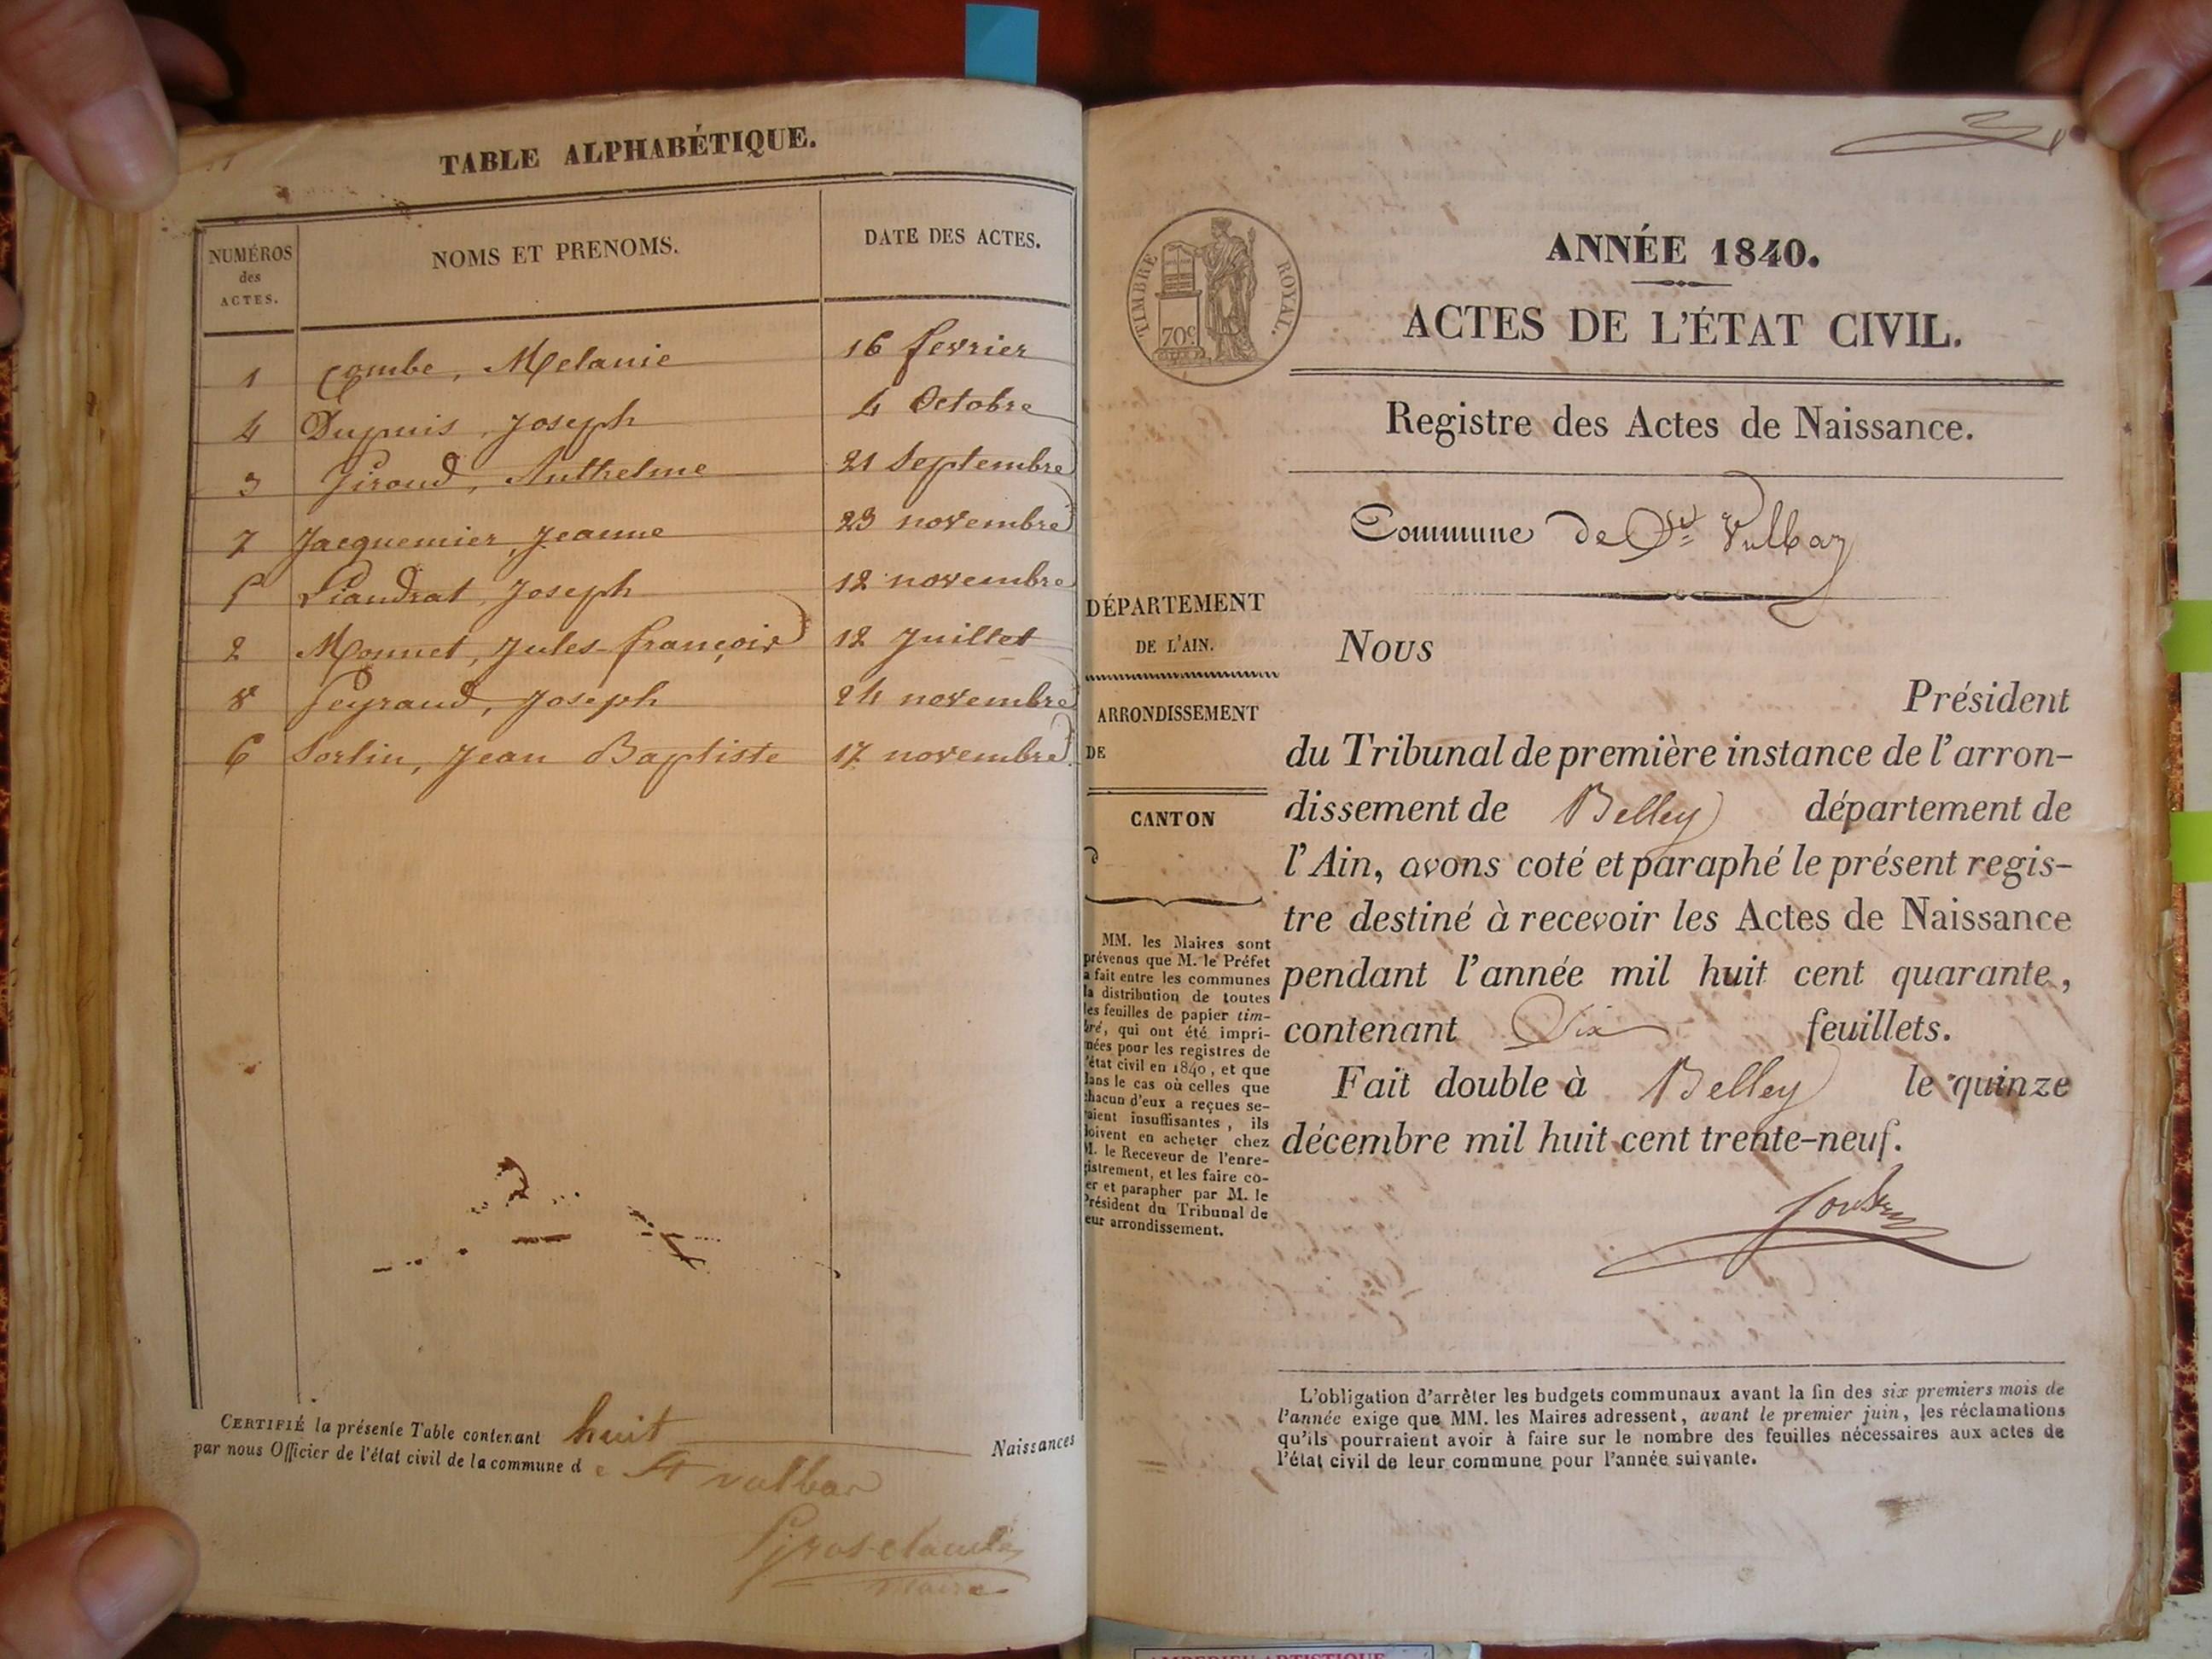 TABLE ALPHABÉTIQUE.
NUMÉROS des ACTES. NOMS ET PRENOMS. DATE DES ACTES.
1 Combe, Melanie 16 fevrier
4 Dupuis, Joseph 4 Octobre
3 Giroud, Anthelme 21 Septembre
7 Jacquemier, Jeanne 23 novembre
5 Liandrat, Joseph 12 novembre
2 Monnet, Jules-françois 12 Juillet
8 Peyraud, Joseph 24 novembre
6 Sorlin, Jean Baptiste 17 novembre
CERTIFIÉ la présente Table contenant huit Naissances
par nous Officier de l'état civil de la commune de St vulbar
Groselaude
maire
TIMBRE ROYAL.
70c.
ANNÉE 1840.
ACTES DE L'ÉTAT CIVIL.
Registre des Actes de Naissance.
Commune de St Vulbaz
DÉPARTEMENT
DE L'AIN.
ARRONDISSEMENT
DE
CANTON
MM. les Maires sont
prévenus que M. le Préfet
a fait entre les communes
la distribution de toutes
les feuilles de papier tim-
bré, qui ont été impri-
mées pour les registres de
l'état civil en 1840, et que
dans le cas où celles que
chacun d'eux a reçues se-
raient insuffisantes, ils
doivent en acheter chez
M. le Receveur de l'enre-
gistrement, et les faire co-
ter et parapher par M. le
Président du Tribunal de
leur arrondissement.
Nous
Président
du Tribunal de première instance de l'arron-
dissement de Belley département de
l'Ain, avons coté et paraphé le présent regis-
tre destiné à recevoir les Actes de Naissance
pendant l'année mil huit cent quarante,
contenant Six feuillets.
Fait double à Belley le quinze
décembre mil huit cent trente-neuf.
L'obligation d'arrêter les budgets communaux avant la fin des six premiers mois de
l'année exige que MM. les Maires adressent, avant le premier juin, les réclamations
qu'ils pourraient avoir à faire sur le nombre des feuilles nécessaires aux actes de
l'état civil de leur commune pour l'année suivante.
AMBERIEU ARTISTIQUE